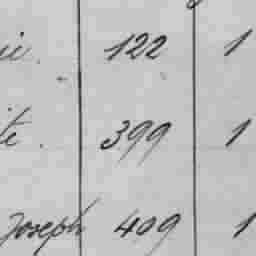 ie. 122 1
te. 399 1
Joseph 409 1